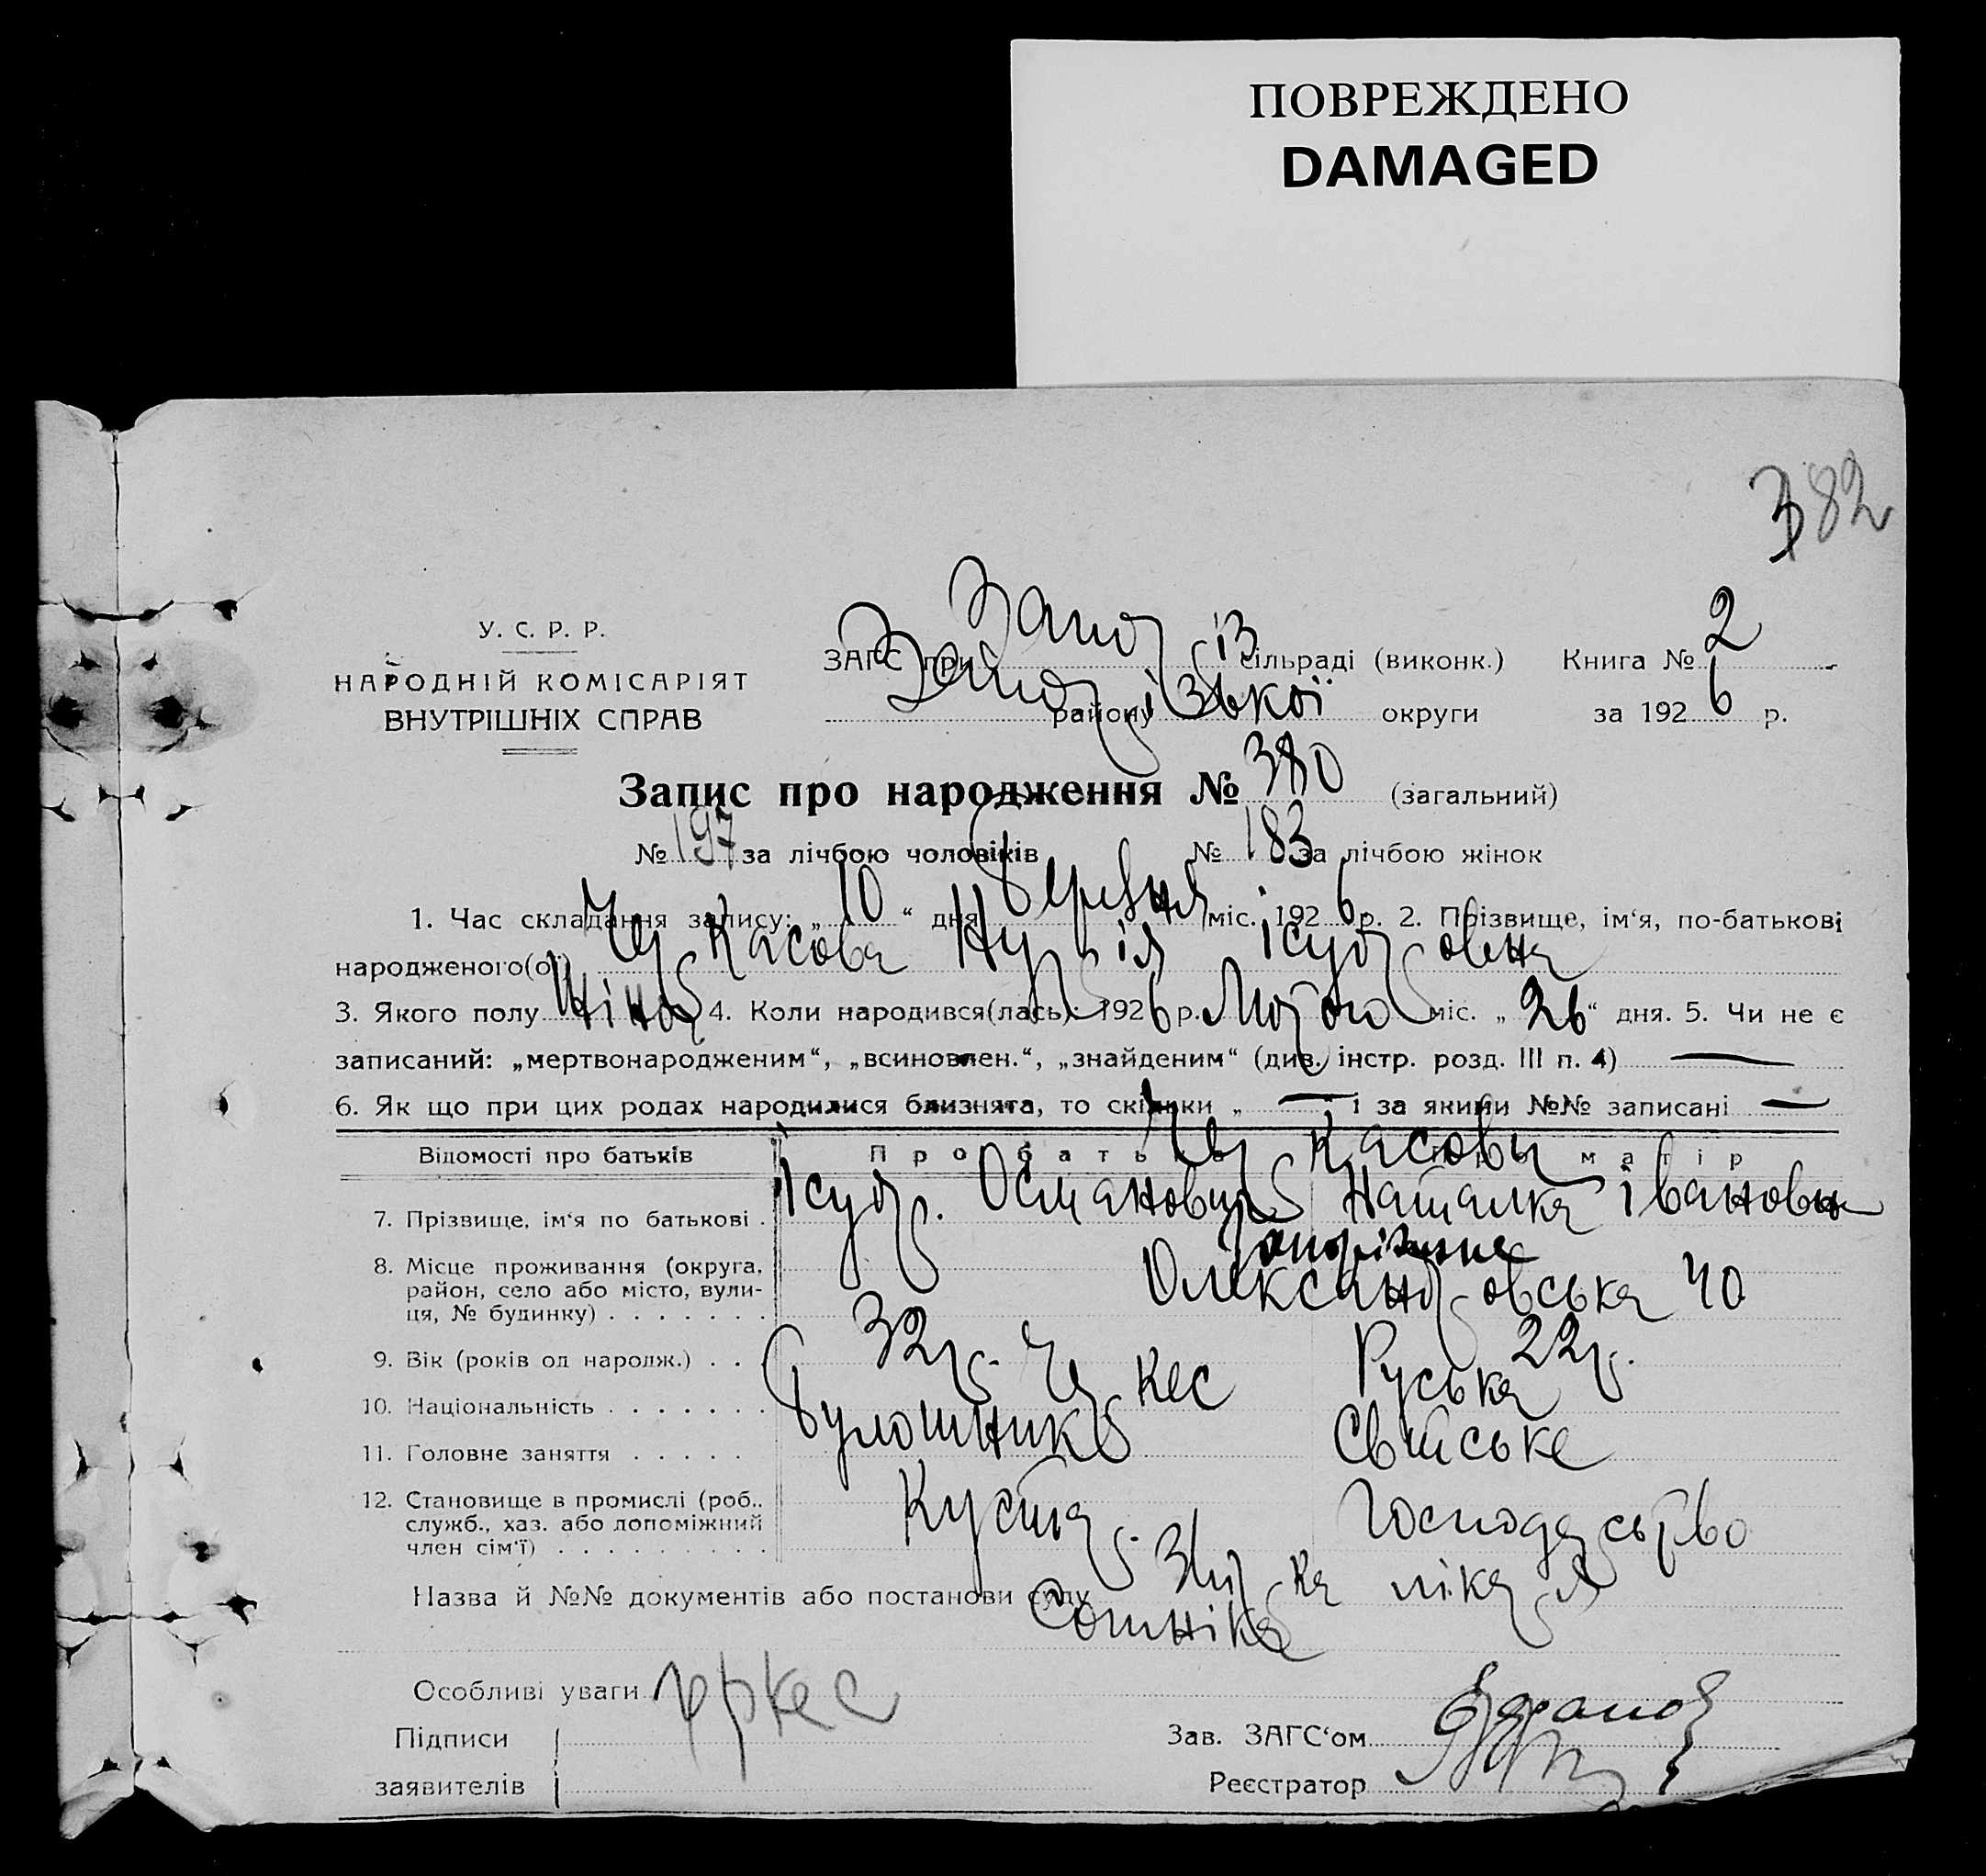 ПОВРЕЖДЕНО
DAMAGED
382
У. С. Р. Р.
НАРОДНІЙ КОМІСАРІЯТ
ВНУТРІШНІХ СПРАВ
ЗАГС при Запоріз сільраді (виконк.) Книга № 2
району Запорізької округи за 1926 р.
Запис про народження № 380 (загальний)
№ 197 за лічбою чоловіків № 183 за лічбою жінок
1. Час складання запису: „10“ дня Березня міс. 1926 р. 2. Прізвище, ім‘я, по-батькові
народженого(ої) Черкасова Нурія Ісуфовна
3. Якого полу Жіноч 4. Коли народився(лась): 1926 р. Лютого міс. „26“ дня. 5. Чи не є
записаний: „мертвонародженим“, „всиновлен.“, „знайденим“ (див. інстр. розд. III п. 4) —
6. Як що при цих родах народилися близнята, то скільки „—“ і за якими №№ записані —
Відомості про батьків Про батька Про матір
Черкасови
7. Прізвище, ім‘я по батькові . Ісуф. Османович Наталка Івановн
8. Місце проживання (округа, район, село або місто, вулиця, № будинку) . . . . . . . Запоріжжє
Олександровська 40
9. Вік (років од народж.) . . . 32р. 22р.
10. Національність . . . . . . . Черкес Руська
11. Головне заняття . . . . . Булошник Свійське
12. Становище в промислі (роб., служб., хаз. або допоміжний член сім‘ї) . . . . . . . . . Кустар. Господарство
Назва й №№ документів або постанови суду Збирка лікаря
Сотніка
Особливі уваги черкес
Підписи
заявителів
Зав. ЗАГС‘ом
Реєстратор